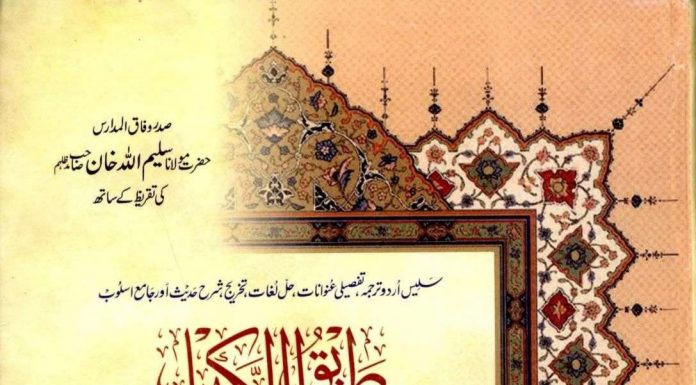 صدر وفاق المدارس
حضرت مولانا سلیم اللہ خان صاحب مدظلہم
کی تقریظ کے ساتھ
سلیس اُردو ترجمہ، تفصیلی عنوانات، حلّ لُغات، تخریج، شرح حدیث اور جامع اسلُوب